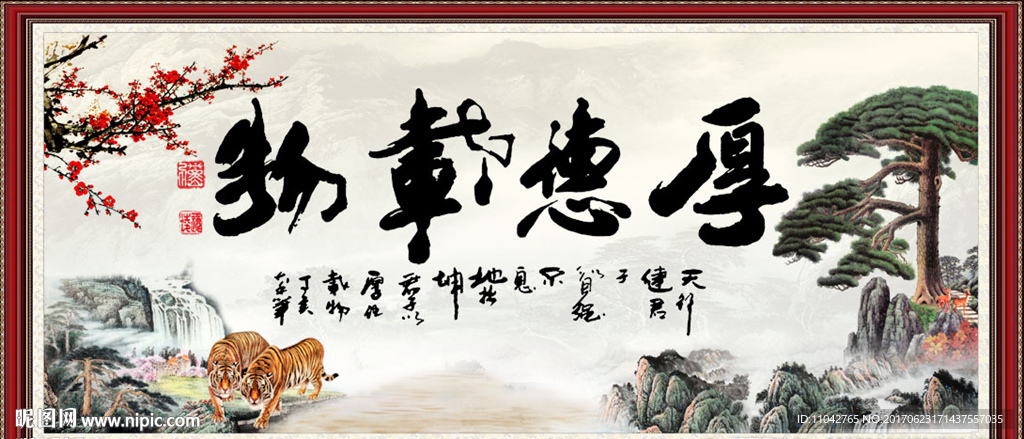 厚德載物
天行
健君
子
以自强
不
息
地势
坤
君子以
厚德
载物
丁亥
昵图网 www.nipic.com
ID:11042765 NO:20170623171437557035